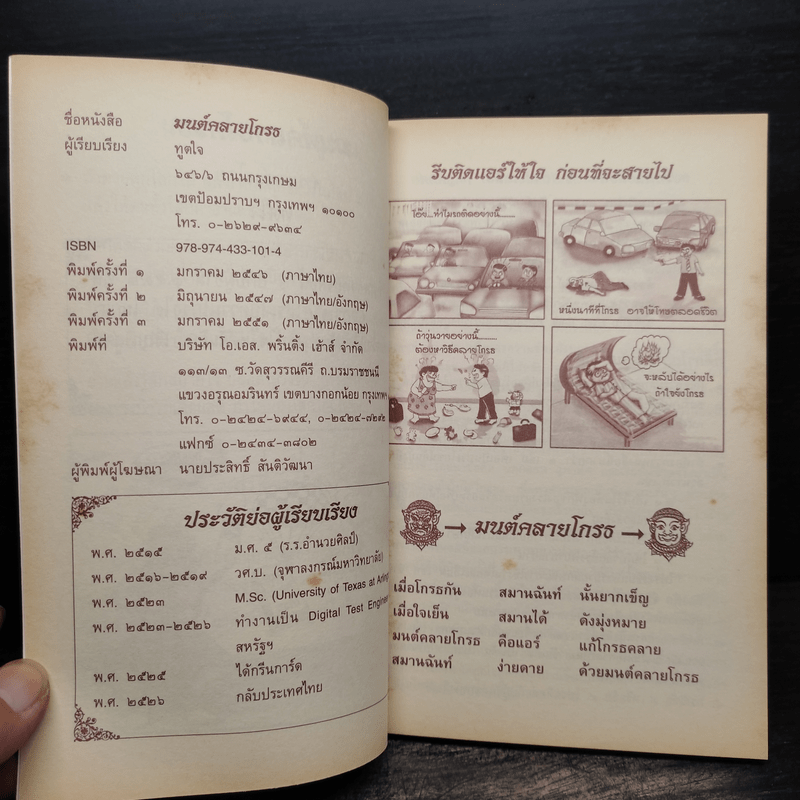 ชื่อหนังสือ มนต์คลายโกรธ
ผู้เรียบเรียง ทูตใจ
๖๔๖/๖ ถนนกรุงเกษม
เขตป้อมปราบฯ กรุงเทพฯ ๑๐๑๐๐
โทร. ๐-๒๖๒๙-๙๖๓๔
ISBN 978-974-433-101-4
พิมพ์ครั้งที่ ๑ มกราคม ๒๕๔๖ (ภาษาไทย)
พิมพ์ครั้งที่ ๒ มิถุนายน ๒๕๔๗ (ภาษาไทย/อังกฤษ)
พิมพ์ครั้งที่ ๓ มกราคม ๒๕๕๑ (ภาษาไทย/อังกฤษ)
พิมพ์ที่ บริษัท โอ.เอส. พริ้นติ้ง เฮ้าส์ จำกัด
๑๑๓/๑๓ ซ.วัดสุวรรณคีรี ถ.บรมราชชนนี
แขวงอรุณอมรินทร์ เขตบางกอกน้อย กรุงเทพฯ
โทร. ๐-๒๔๒๔-๖๙๔๔, ๐-๒๔๒๔-๗๒๙๒
แฟกซ์ ๐-๒๔๓๔-๓๘๐๒
ผู้พิมพ์ผู้โฆษณา นายประสิทธิ์ สันติวัฒนา
ประวัติย่อผู้เรียบเรียง
พ.ศ. ๒๕๑๕ ม.ศ. ๕ (ร.ร.อำนวยศิลป์)
พ.ศ. ๒๕๑๖-๒๕๑๙ วศ.บ. (จุฬาลงกรณ์มหาวิทยาลัย)
พ.ศ. ๒๕๒๓ M.Sc. (University of Texas at
พ.ศ. ๒๕๒๓-๒๕๒๖ ทำงานเป็น Digital Test
สหรัฐฯ
พ.ศ. ๒๕๒๕ ได้กรีนการ์ด
พ.ศ. ๒๕๒๖ กลับประเทศไทย
รีบติดแอร์ให้ใจ ก่อนที่จะสายไป
โอ๊ย...ทำไมรถติดอย่างนี้........
หนึ่งนาทีที่โกรธ อาจให้โทษตลอดชีวิต
ถ้าวุ่นวายอย่างนี้.......
ต้องหาวิธีคลายโกรธ
จะหลับได้อย่างไร
ถ้าใจยังโกรธ
→ มนต์คลายโกรธ →
เมื่อโกรธกัน สมานฉันท์ นั้นยากเข็ญ
เมื่อใจเย็น สมานได้ ดังมุ่งหมาย
มนต์คลายโกรธ คือแอร์ แก้โกรธคลาย
สมานฉันท์ ง่ายดาย ด้วยมนต์คลายโกรธ